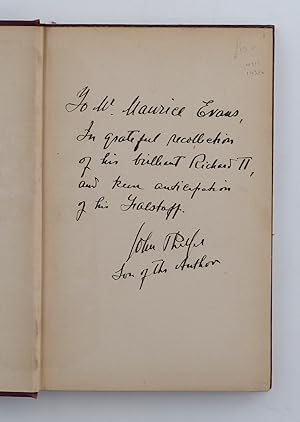 To Mr. Maurice Evans,
In grateful recollection
of his brilliant Richard II,
and keen anticipation
of his Falstaff.
John
Son of the Author